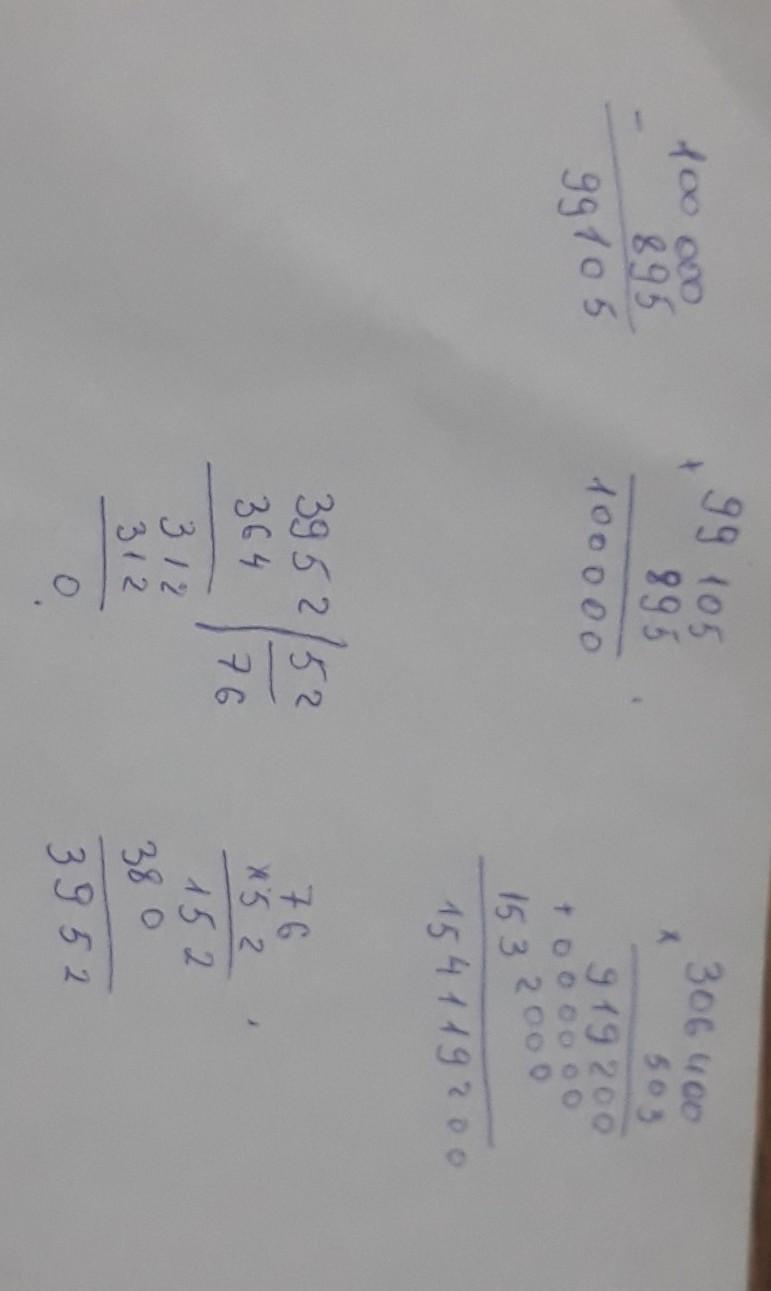 100 000
- 895
99105
99 105
+ 895
100000
306 400
x 503
919200
+ 000000
1532000
154119200
3952 | 52
364 76
312
312
0
76
x 52
152
380
3952